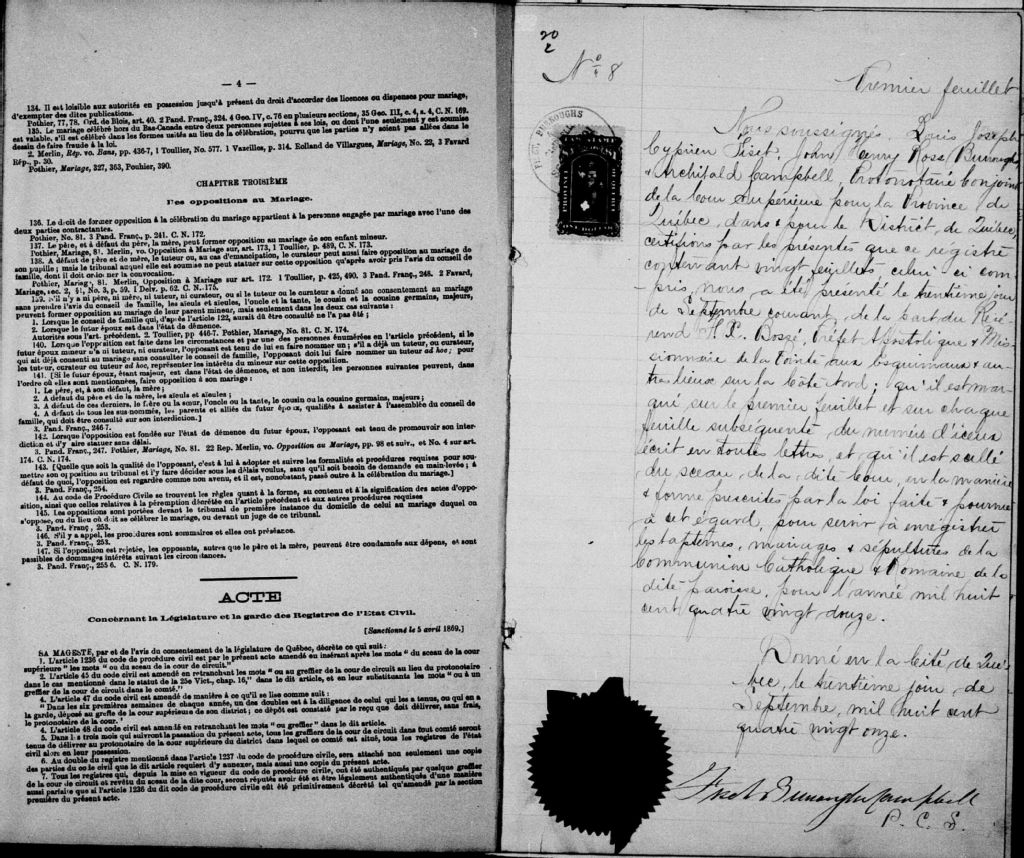 — 4 —
134. Il est loisible aux autorités en possession jusqu'à présent du droit d'accorder des licences ou dispenses pour mariage,
d'exempter des dites publications.
Pothier, 77, 78. Ord. de Blois, art. 40. 2 Pand. Franç., 324. 4 Geo. IV, c. 76 en plusieurs sections, 35 Geo. III, c. 4, s. 4, C. N. 169.
135. Le mariage célébré hors du Bas-Canada entre deux personnes sujettes à ses lois, ou dont l'une seulement y est soumise
est valable, s'il est célébré dans les formes usités au lieu de la célébration, pourvu que les parties n'y soient pas allées dans le
dessin de faire fraude à la loi.
2. Merlin, Rép. vo. Bans, pp. 436-7, 1 Toullier, No. 577. 1 Vazeilles, p. 314. Rolland de Villargues, Mariage, No. 22, 3 Favard
Rép., p. 30.
Pothier, Mariage, 327, 363, Pouhier, 390.
CHAPITRE TROISIÈME
Des oppositions au Mariage.
136. Le droit de former opposition à la célébration du mariage appartient à la personne engagée par mariage avec l'une des
deux parties contractantes.
Pothier, No. 81. 3 Pand. Franç., p. 241. C. N. 172.
137. Le père, et à défaut du père, la mère, peut former opposition au mariage de son enfant mineur.
Pothier, Mariage, 81. Merlin, vo. Opposition à Mariage, sur art. 173, 1 Toullier, p. 489, C. N. 173.
138. A défaut de père et de mère, le tuteur ou, au cas d'émancipation, le curateur peut aussi faire opposition au mariage de
son pupille; mais le tribunal auquel elle est soumise ne peut statuer sur cette opposition qu'après avoir pris l'avis du conseil de
famille, dont il doit ordonner la convocation.
Pothier, Mariage, 81. Merlin, Opposition à Mariage sur art. 172. 1 Toullier, p. 425, 490. 3 Pand. Franç., 248. 2 Favard,
Mariage, sec. 2, §1, No. 3, p. 59. 1 Delv. p. 62. C. N. 175.
139. S'il n'y a ni père, ni mère, ni tuteur, ni curateur, ou si le tuteur ou le curateur a donné son consentement au mariage
sans prendre l'avis du conseil de famille, les aïeuls et aïeules, l'oncle et la tante, le cousin et la cousine germains, majeurs,
peuvent former opposition au mariage de leur parent mineur, mais seulement dans les deux cas suivants :
1. Lorsque le conseil de famille qui, d'après l'article 122, aurait dû être consulté ne l'a pas été ;
2. Lorsque le futur époux est dans l'état de démence.
Autorités sous l'art. précédent. 2. Toullier, pp 446-7. Pothier, Mariage, No. 81. C. N. 174.
140. Lorsque l'opposition est faite dans les circonstances et par une des personnes énumérées en l'article précédent, si le
futur époux mineur n'a ni tuteur, ni curateur, l'opposant est tenu de lui en faire nommer un ; s'il a déjà un tuteur, ou curateur,
qui ait déjà consenti au mariage sans consulter le conseil de famille, l'opposant doit lui faire nommer un tuteur ad hoc ; pour
les tuteur, curateur ou tuteur ad hoc, représenter les intérêts du mineur sur cette opposition.
141. [Si le futur époux, étant majeur, est dans l'état de démence, et non interdit, les personnes suivantes peuvent, dans
l'ordre où elles sont mentionnées, faire opposition à son mariage :
1. Le père, et, à son défaut, la mère ;
2. A défaut du père et de la mère, les aïeuls et aïeules ;
3. A défaut de ces derniers, le frère ou la sœur, l'oncle ou la tante, le cousin ou la cousine germains, majeurs ;
4. A défaut de tous les sus-nommés, les parents et alliés du futur époux, qualifiés à assister à l'assemblée du conseil de
famille, qui doit être consulté sur son interdiction.]
3. Pand. Franç., 246 7.
142. Lorsque l'opposition est fondée sur l'état de démence du futur époux, l'opposant est tenu de promouvoir son inter-
diction et d'y faire statuer sans délai.
3. Pand. Franç., 247. Pothier, Mariage, No. 81. 22 Rep. Merlin, vo. Opposition au Mariage, pp. 98 et suiv., et No. 4 sur art.
174. C. N. 174.
143. [Quelle que soit la qualité de l'opposant, c'est à lui à adopter et suivre les formalités et procédures requises pour sou-
mettre son opposition au tribunal et l'y faire décider sous les délais voulus, sans qu'il soit besoin de demande en main-levée ; à
défaut de quoi, l'opposition est regardée comme non avenu, et il est, nonobstant, passé outre à la célébration du mariage.]
3. Pand. Franç., 254.
144. Au code de Procédure Civile se trouvent les règles quant à la forme, au contenu et à la signification des actes d'oppo-
sition, ainsi que celles relatives à la péremption décrétée en l'article précédent et aux autres procédures requises
145. Les oppositions sont portées devant le tribunal de première instance du domicile de celui au mariage duquel on
s'oppose, ou du lieu où doit se célébrer le mariage, ou devant un juge de ce tribunal.
3. Pand. Franç., 253.
146. S'il y a appel, les procédures sont sommaires et elles ont préséance.
3. Pand. Franç., 253.
147. Si l'opposition est rejetée, les opposants, autres que le père et la mère, peuvent être condamnés aux dépens, et sont
passibles de dommages intérêts suivant les circonstances.
3. Pand. Franç., 255 6. C. N. 179.
ACTE
Concernant la Législature et la garde des Registres de l'Etat Civil.
[Sanctionné le 5 avril 1869.]
SA MAGESTE, par et de l'avis du consentement de la législature de Québec, décrète ce qui suit :
1. L'article 1236 du code de procédure civil est par le présent acte amendé en insérant après les mots " du sceau de la cour
supérieure " les mots " ou du sceau de la cour de circuit."
2. L'article 45 du code civil est amendé en retranchant les mots " ou au greffier de la cour de circuit au lieu du protonotaire
dans le cas mentionné dans le statut de la 25e Vict., chap. 16," dans le dit article, et en leur substituants les mots " ou à un
greffier de la cour de circuit dans le comté."
4. L'article 47 du code civil est amendé de manière à ce qu'il se lise comme suit :
" Dans les six premières semaines de chaque année, un des doubles est à la diligence de celui qui les a tenus, ou qui en a
la garde, déposé au greffe de la cour supérieure de son district ; ce dépôt est constaté par le reçu que doit délivrer, sans frais,
le protonotaire de la cour. "
4. L'article 48 du code civil est amendé en retranchant les mots " ou greffier " dans le dit article.
5. Dans les trois mois qui suivront la passation du présent acte, tous les greffiers de la cour de circuit dans tout comté seront
tenus de délivrer au protonotaire de la cour supérieure du district dans lequel ce comté est situé, tous les registres de l'état
civil alors en leur possession.
6. Au double du registre mentionné dans l'article 1237 du code de procédure civile, sera attaché non seulement une copie
des parties du code civil que le dit article requiert d'y annexer, mais aussi une copie du présent acte.
7. Tous les registres qui, depuis la mise en vigueur du code de procédure civile, ont été authentiqués par quelque greffier
de la cour de circuit et revêtu du sceau de la dite cour, seront réputés avoir été et être légalement authentiqués d'une manière
aussi parfaite que si l'article 1236 du dit code de procédure civile eût été primitivement décrété tel qu'amendé par la section
première du présent acte.
20
2
No 8
BURROUGHS
Premier feuillet
Nous soussignés Louis Joseph
Cyprien Fiset, John Henry Ross Burroughs
& Archibald Campbell, Protonotaire Conjoint
de la Cour Supérieure pour la Province de
Québec, dans & pour le District, de Québec,
certifions par les présentes que ce registre
contenant vingt feuillets, celui ci com
pris, nous a été présenté le trentième jour
de Septembre courant, de la part du Révé-
rend F. X. Bossé, Préfet Apostolique & Mis-
sionnaire de la Pointe aux Esquimaux & au-
tres lieux sur la Côte Nord ; qu'il est mar-
qué sur le premier feuillet et sur chaque
feuille subséquente, du numéro d'iceux
écrit en toutes lettres, et qu'il est scellé
du sceau de la dite Cour, en la manière
& forme prescrites par la loi faite & pourvue
à cet égard, pour servir à enregistrer
les baptemes, mariages & sépultures de la
Communion Catholique & Romaine de la
dite paroisse, pour l'année mil huit
cent quatre vingt douze.
Donné en la Cité de Qué-
bec, le trentième jour de
Septembre, mil huit cent
quatre vingt onze.
Fiset Burroughs Campbell
P. C. S.